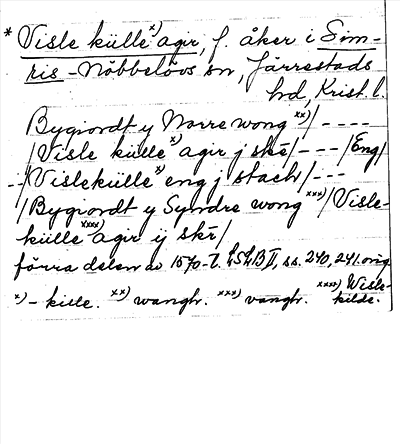 * Visle külle x) agir, f. åker i Sim-
ris-Nöbbelövs sn, Järrestads
hd, Krist. l.
Bygiordt y Norre wong xx)/ ----
/Visle külle x) agir j skē/ --- /Eng/
--/Vislekülle x) eng j stach/ ---
/Bygiordt y Syndre wong xxx)/ Visle-
külle xxxx) agir ij skē/
förra delen av 1570-t. LSLB II, ss. 240, 241. orig
x) - kille. xx) wangh. xxx) vangh. xxxx) Wisle-
kilde.